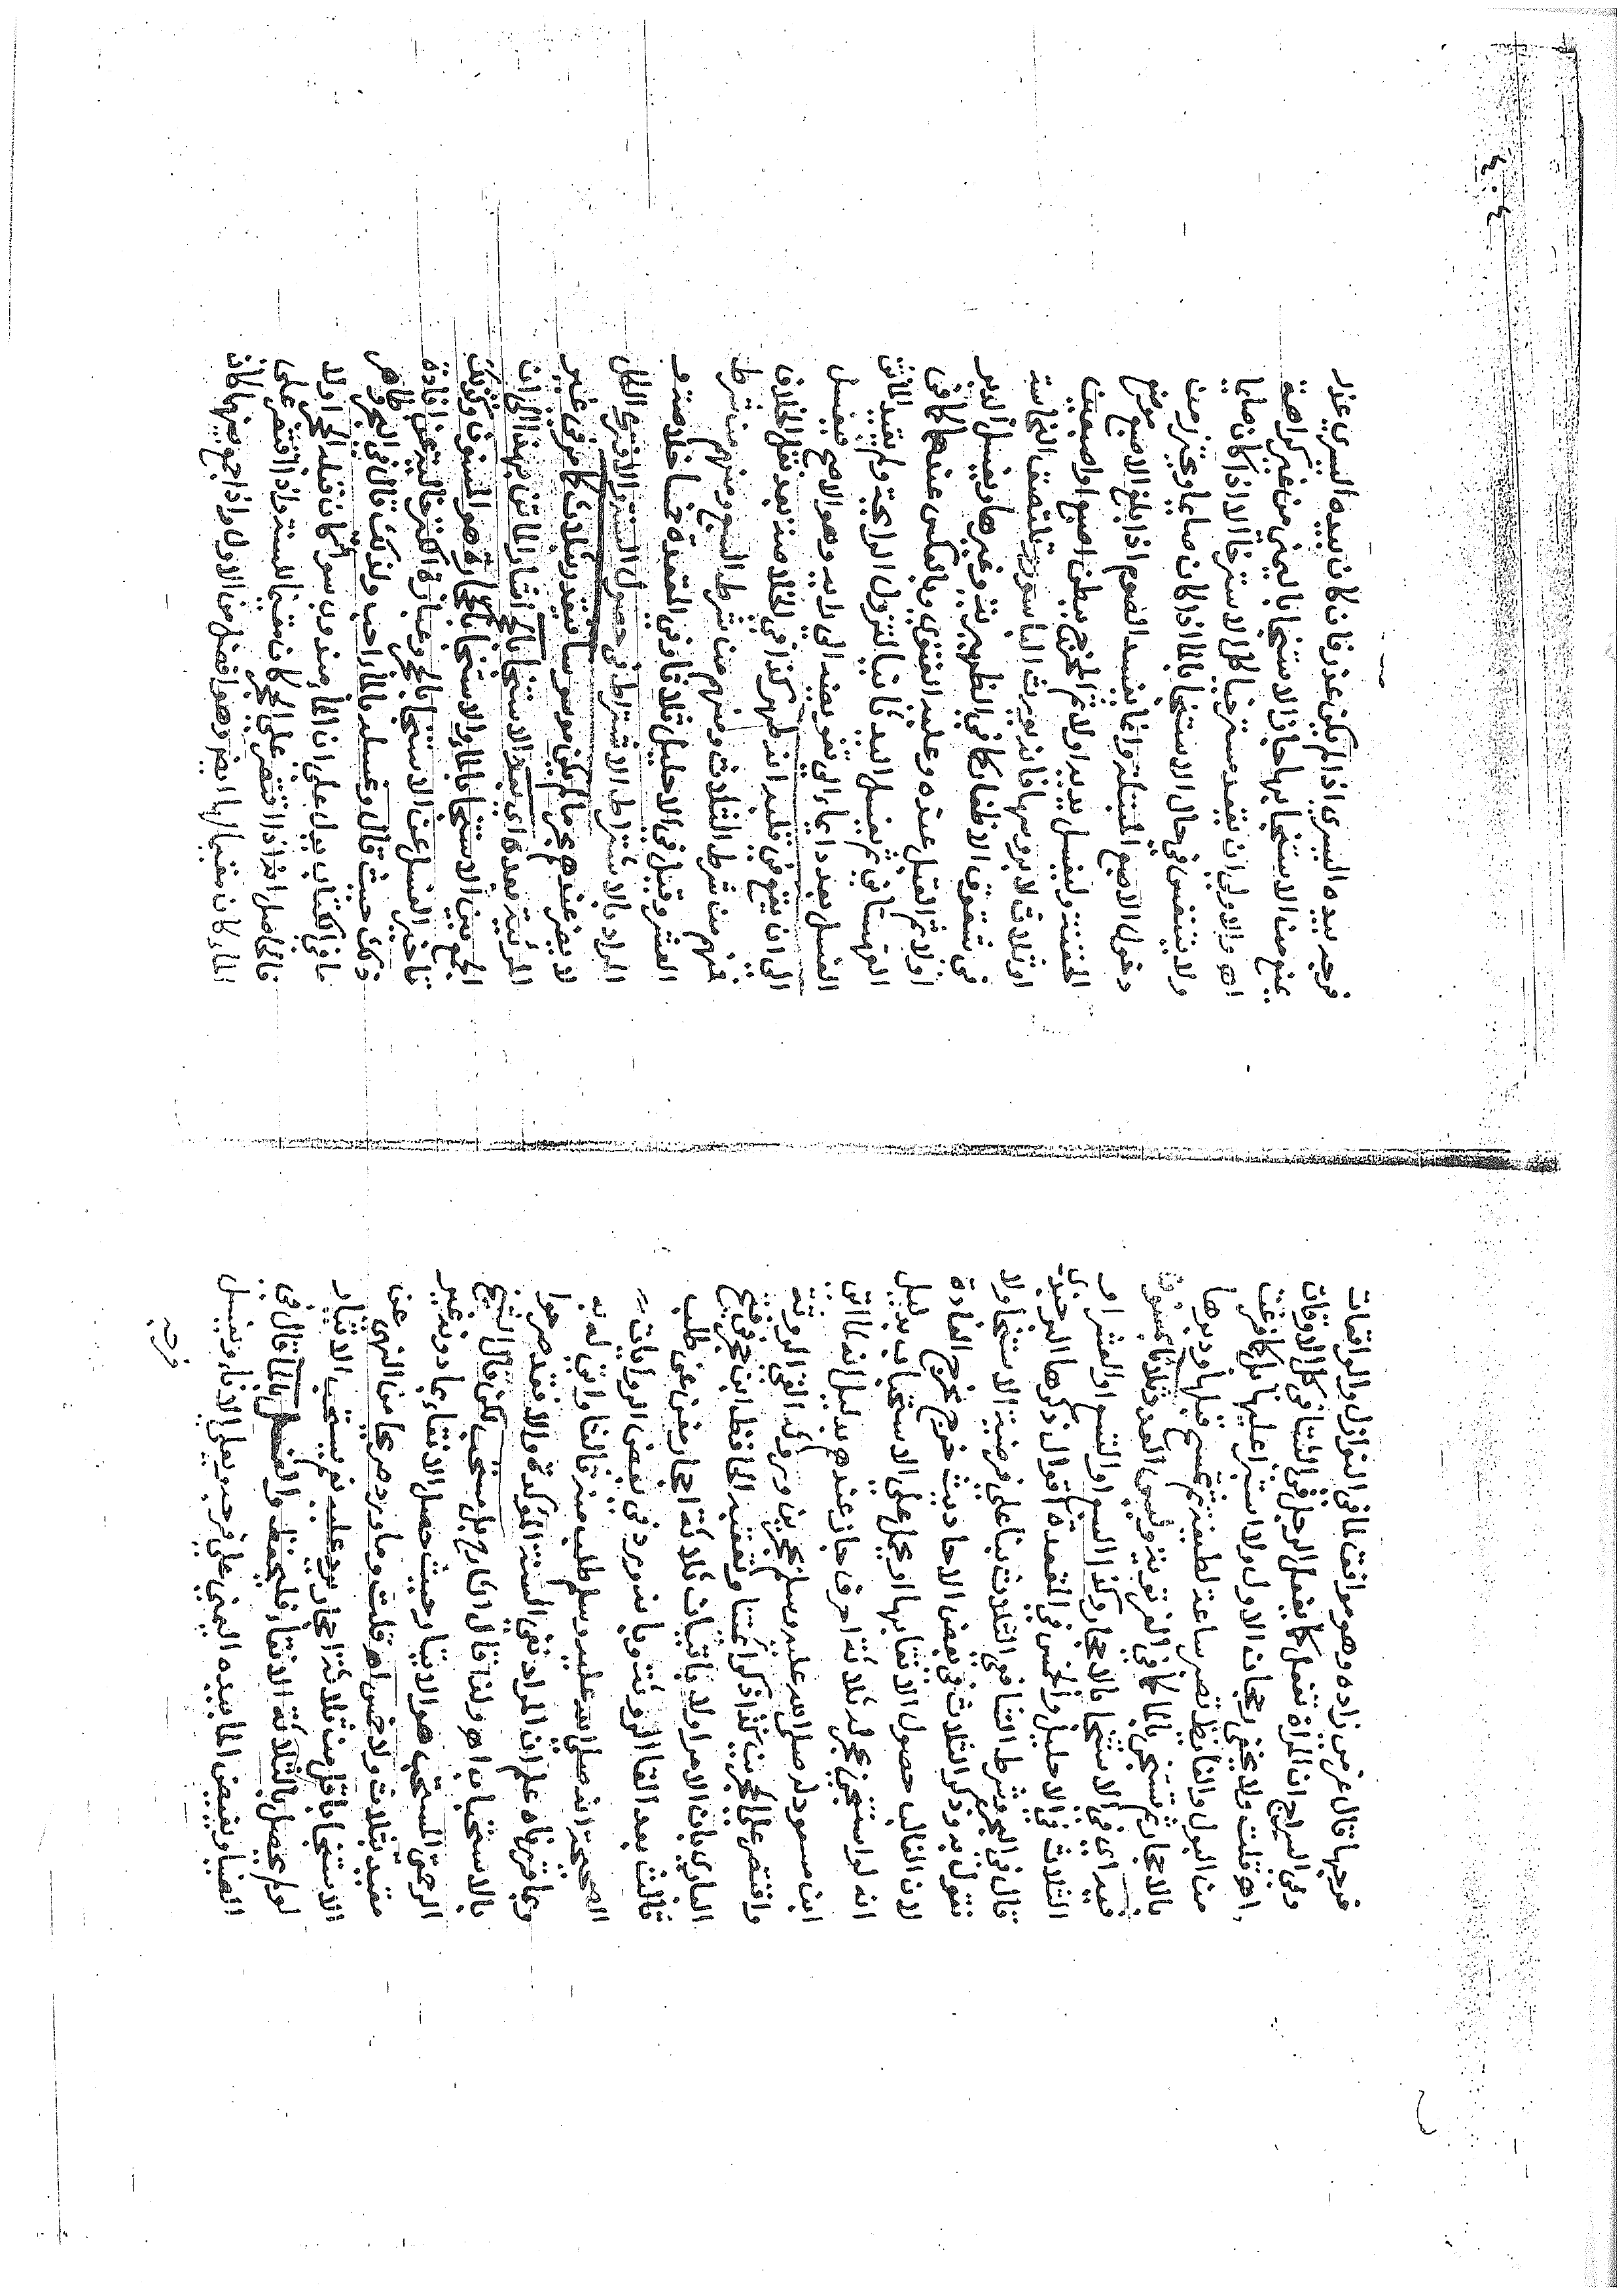 فرجها قال عزمي زاده وهو موافق لما في النوازل والواقعات
وفي السراج ان المراة تفعل كما يفعل الرجل في الشتا في كل الاوقات
اه قلت ولا يخفى رجحان الاول ولا استبرا عليها بل كما فرغت
من البول والغائط تصبر ساعة لطيفة ثم تمسح قبلها ودبرها
بالاحجار ثم تستنجي بالماء كما في الغزنوية وليس العدد ثلاثا بمسنون
فيه اي في الاستنجا بالاحجار وكذا السبع او التسع او العشر او
الثلاث في الاحليل والخمس في المقعدة اقوال ذكرها البرجندي
قال في البحر وشرط الشافعي الثلاث بناء على فرضية الاستنجا ولا
نقول به وذكر الثلاث في بعض الاحاديث خرج مخرج العادة
لان الغالب حصول الانقا بها او يحمل على الاستحباب بدليل
انه لو استنجى بحجر له ثلاثة احرف جاز عندهم بدليل انه لما اتى
ابن مسعود له صلى الله عليه وسلم بحجرين وروثة القى الروثة
واقتصر على الحجرين كذا ذكر ائمتنا وتعقبه الحافظ ابن حجر في فتح
الباري بان الامر اولا باتيان ثلاثة احجار يغني عن طلب
ثالث بعد القا الروثة وبانه ورد في بعض الروايات
الصحيحة انه صلى الله عليه وسلم طلب منه ثالثا واتى له به
وبما قررناه علم ان المراد نفي السنة المؤكدة والا فقد صرحوا
بالاستحباب اه ولذا قال الشارح بل مستحب لكن قال الشيخ
الرحمتي المستحب هو الانقا وحيث حصل الانقاء بما دونه غير
مقيد بثلاث ولا خمس اه قلت وما ورد صريحا من النهي عن
الاستنجا باقل من ثلاثة احجار يرد عليه نعم يستحب الايتار
لو لم يحصل بالثلاثة الانقا فليحفظ والغسل بالما قال في
الضيا ويفيض الما بيده اليمنى على فرجه ويعلي الانا ويغسل
فرجه
فرجه بيده اليسرى اذا لم يكن عذر فان كان بيده اليسرى عذر
يمنع من الاستنجا بها جاز الاستنجا باليمنى من غير كراهة
اه والاولى ان يقعد مسترخيا كل الاسترخا الا اذا كان صايما
ولا يتنفس في حال الاستنجا بالما اذا كان صايما ويحترز من
دخول الاصبع المبتلة وانما يفسد الصوم اذا بلغ الاصبع موضع
الحقنة وليغسل يديه اولا ثم المخرج ببطن اصبع او اصبعين
او ثلاث لا بروسها فانه يورث الباسور وتلتصق النجاسة
في شقوق الاظفار كما في الظهيرية وغيرها ويغسل الدبر
اولا ثم القبل عنده وعليه الفتوى وبالعكس عندهما كما في
القهستاني ثم يغسل اليد ثانيا لتزول الرايحة ولم يقيد الماتن
الغسل بعدد ايماء الى تفويضه الى رايه وهو الاصح فيغسل
الى ان يقع في قلبه انه طهر كذا في الخلاصة بعد نقل الخلاف
فمنهم من شرط الثلاث ومنهم من شرط السبع ومنهم من شرط
العشر وقيل في الاحليل ثلاثا وفي المقعدة خمسا خلاصة و
المراد بالاشتراط الاشتراط في حصول السنة والا فترك الكل
لا يضر عندهم بحر ما لم يكن موسوسا فيقدر بثلاث كما مر في غير
المرئية بعده اي بعد الاستنجا بالحجر اشار الماتن بهذا الى ان
الجمع بين الاستنجا بالما والاستنجا بالحجارة هو المسنون وكذلك
تاخير الغسل عن الاستنجا بالحجر وعبارة الكنز خالية عن افادة
ذلك حيث قال وغسله بالما احب ولذلك قال في البحر وظاهر
ما في الكتاب يدل على ان الماء مندوب سوا كان قبله الحجر اولا
فالحاصل انه اذا اقتصر على الحجر كان مقيما للسنة واذا اقتصر على
الما كان مقيما لها ايضا وهو افضل من الاول واذا جمع بينهما كان